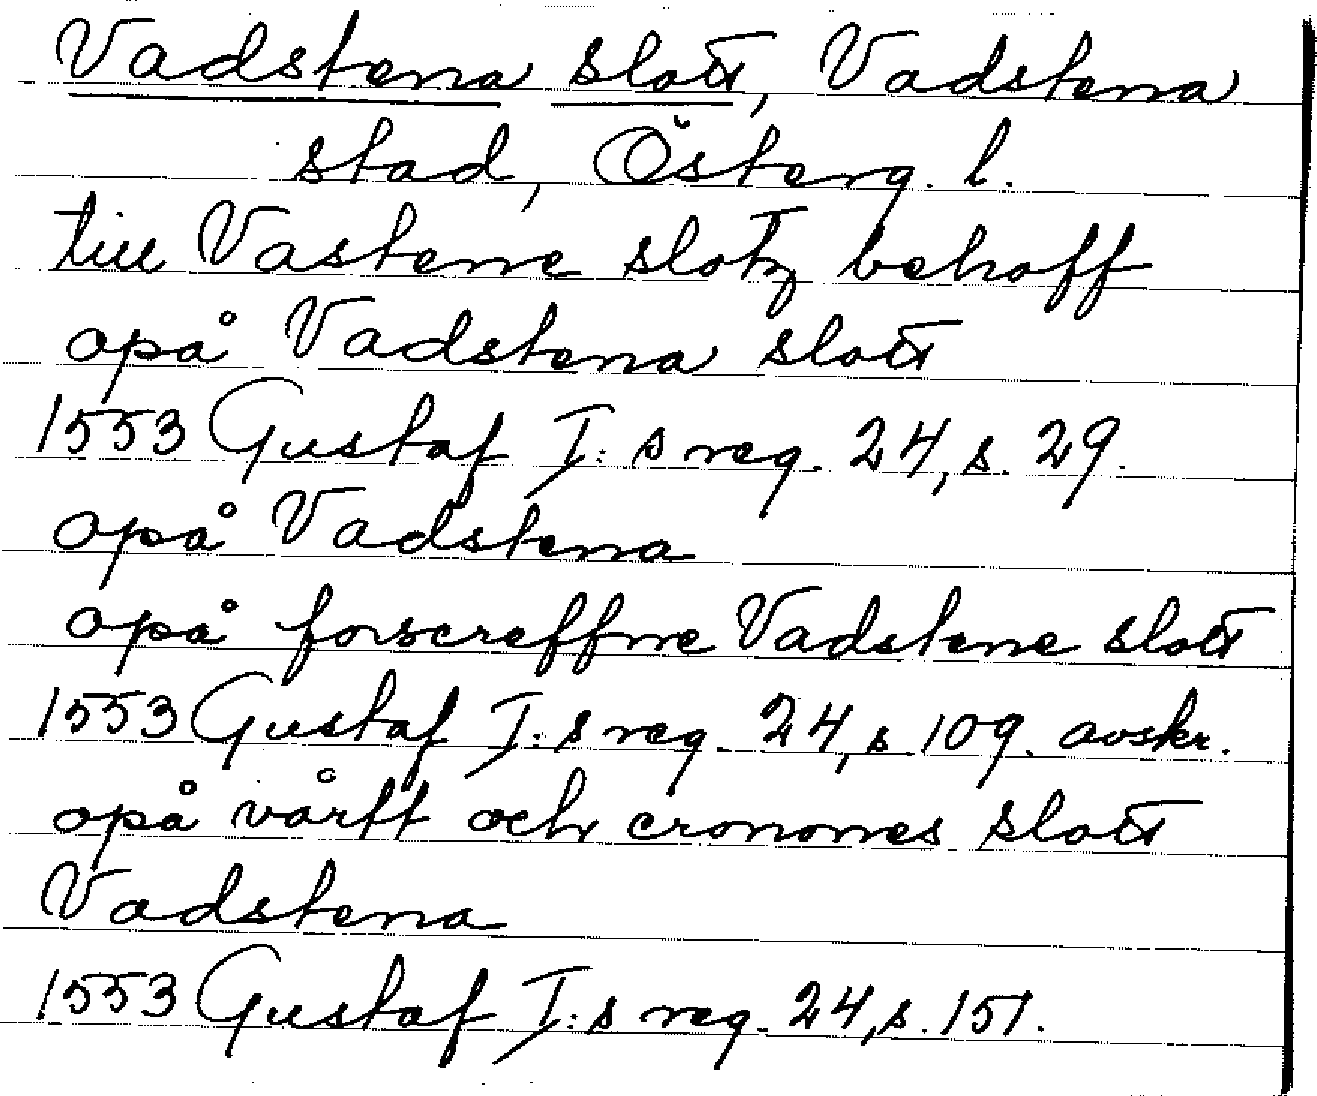 Vadstena slott, Vadstena
stad, Österg. l.
till Vastene slotz behoff
opå Vadstena slott
1553 Gustaf I:s reg. 24, s. 29.
opå Vadstena
opå forscreffne Vadstene slott
1553 Gustaf I:s reg. 24, s. 109. avskr.
opå vårtt och cronones slott
Vadstena
1553 Gustaf I:s reg. 24, s. 151.